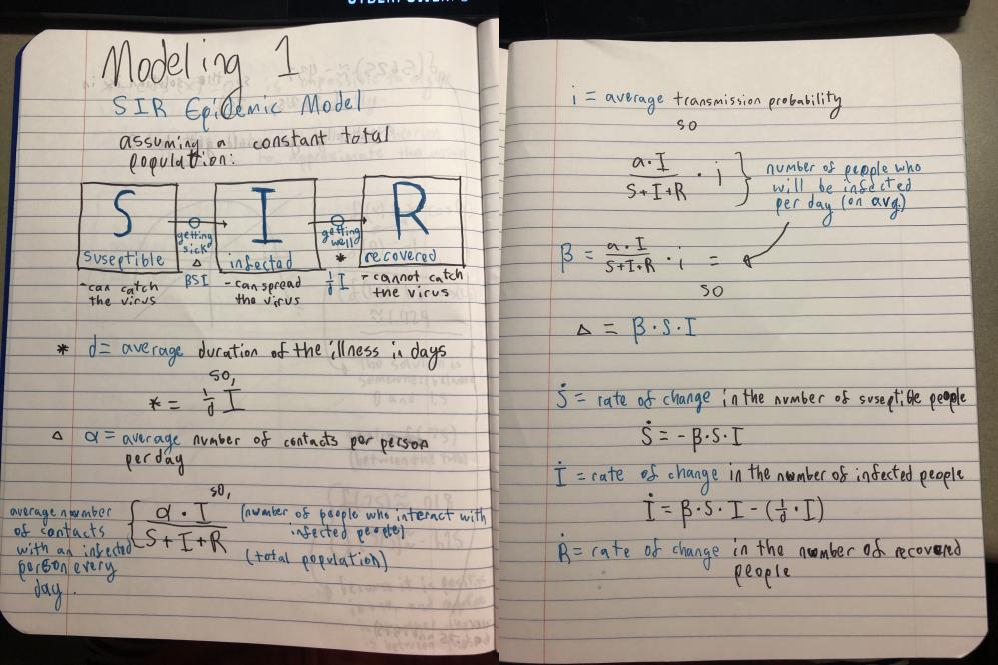 Modeling 1
SIR Epidemic Model
assuming a constant total
population:
S
suseptible
getting
sick
Δ
βSI
I
infected
getting
well
*
1/d I
R
recovered
-can catch
the virus
-can spread
the virus
-cannot catch
the virus
* d = average duration of the illness in days
so,
* = 1/d I
Δ a = average number of contacts per person
per day
so,
average number
of contacts
with an infected
person every
day.
{ a · I / S + I + R
(number of people who interact with
infected people)
(total population)
i = average transmission probability
so
a·I / S+I+R · i }
number of people who
will be infected
per day (on avg.)
β = a·I / S+I+R · i =
so
Δ = β·S·I
Ṡ = rate of change in the number of suseptible people
Ṡ = -β·S·I
İ = rate of change in the number of infected people
İ = β·S·I - (1/d · I)
Ṙ = rate of change in the number of recovered
people